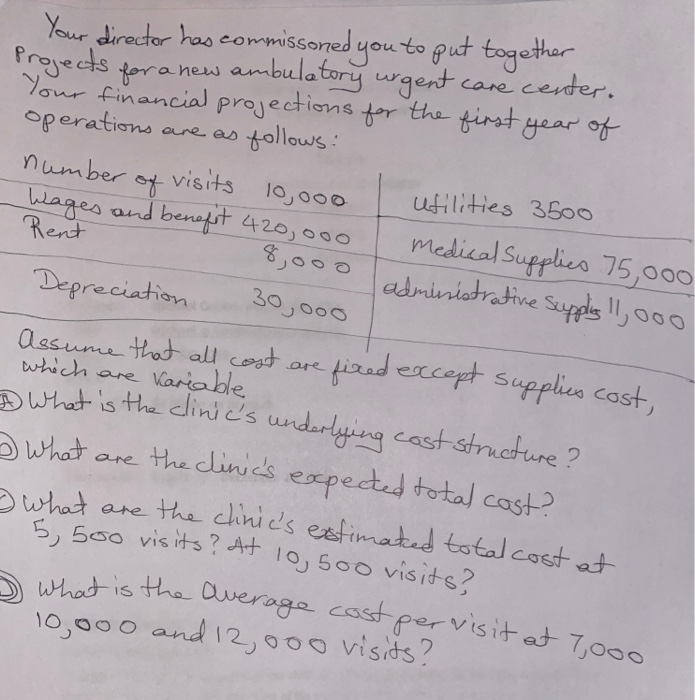 Your director has commissoned you to put together
Projects for a new ambulatory urgent care center.
Your financial projections for the first year of
operations are as follows:
number of visits 10,000
Wages and benefit 420,000
Rent 8,000
Depreciation 30,000
utilities 3500
Medical Supplies 75,000
administrative Supplis 11,000
assume that all cost are fixed except supplies cost,
which are variable
A What is the clinic's underlying cost structure?
What are the clinic's expected total cost?
C what are the clinic's estimated total cost at
5,500 visits? At 10,500 visits?
D what is the average cost per visit at 7,000
10,000 and 12,000 visits?